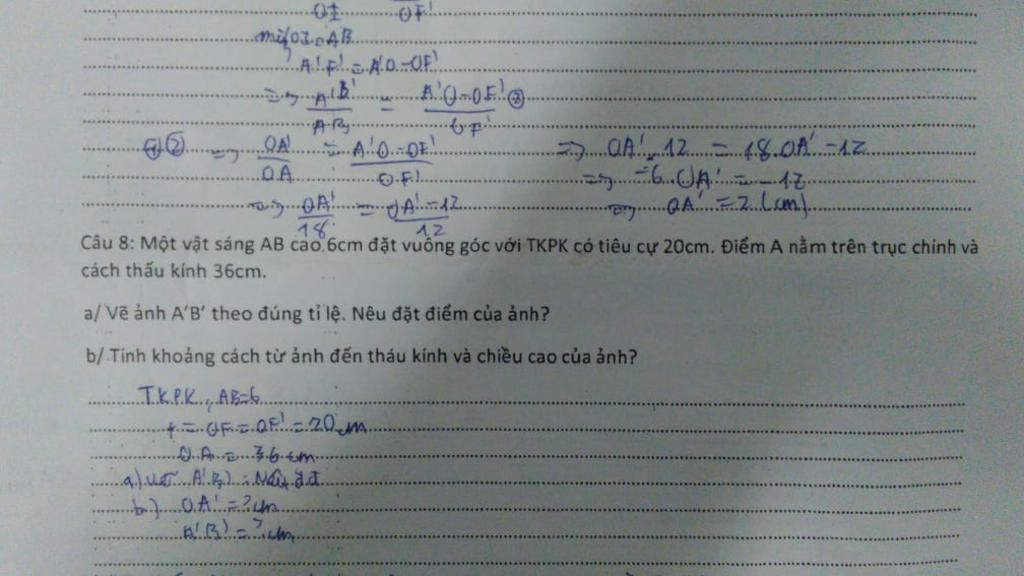 OI OF'
mà OI = AB
A'F' = A'O - OF'
=> A'B' / AB = A'O - OF' / OF' ②
①② => OA' / OA = A'O - OF' / OF' => OA'. 12 = 18.OA' - 12
=> OA' / 18 = OA' - 12 / 12 => -6 OA' = -12
=> OA' = 2 (cm)
Câu 8: Một vật sáng AB cao 6cm đặt vuông góc với TKPK có tiêu cự 20cm. Điểm A nằm trên trục chính và
cách thấu kính 36cm.
a/ Vẽ ảnh A'B' theo đúng tỉ lệ. Nêu đặt điểm của ảnh?
b/ Tính khoảng cách từ ảnh đến tháu kính và chiều cao của ảnh?
TKPK, AB=6
f = OF = OF' = 20 cm
OA = 36 cm
a) vẽ A'B' : Nêu đđ
b) OA' = ? cm
A'B' = ? cm